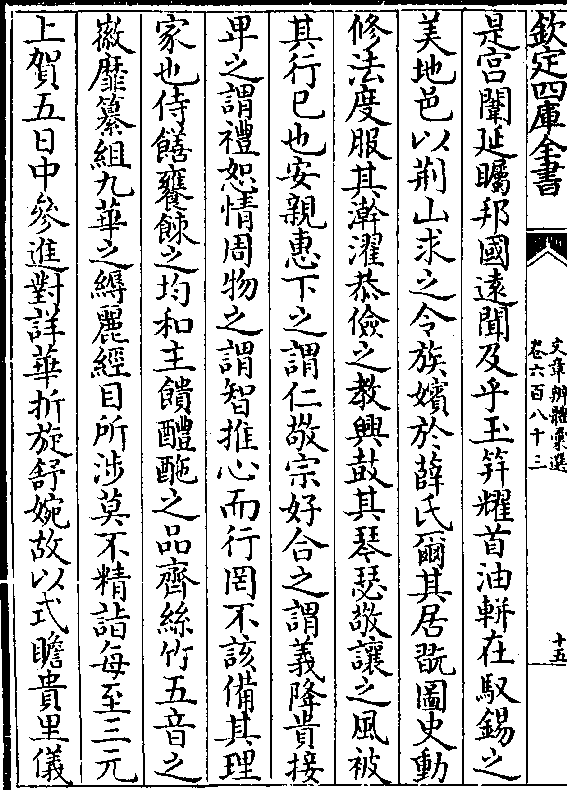 欽定四庫全書
文章辨體彙選
卷六百八十三
十五
是宫闈延矚邦國遠聞及乎玉笄耀首油軿在馭錫之
美地邑以荆山求之令族嬪於薛氏爾其居翫圖史動
修法度服其澣濯恭儉之教興鼓其琴瑟敬讓之風被
其行已也安親惠下之謂仁敬宗好合之謂義降貴接
卑之謂禮恕情周物之謂智推心而行罔不該備其理
家也侍饍饔餗之均和主饋醴酏之品齊絲竹五音之
徽靡纂組九華之縟麗經目所涉莫不精詣每至三元
上賀五日中參進對詳華折旋舒婉故以式瞻貴里儀